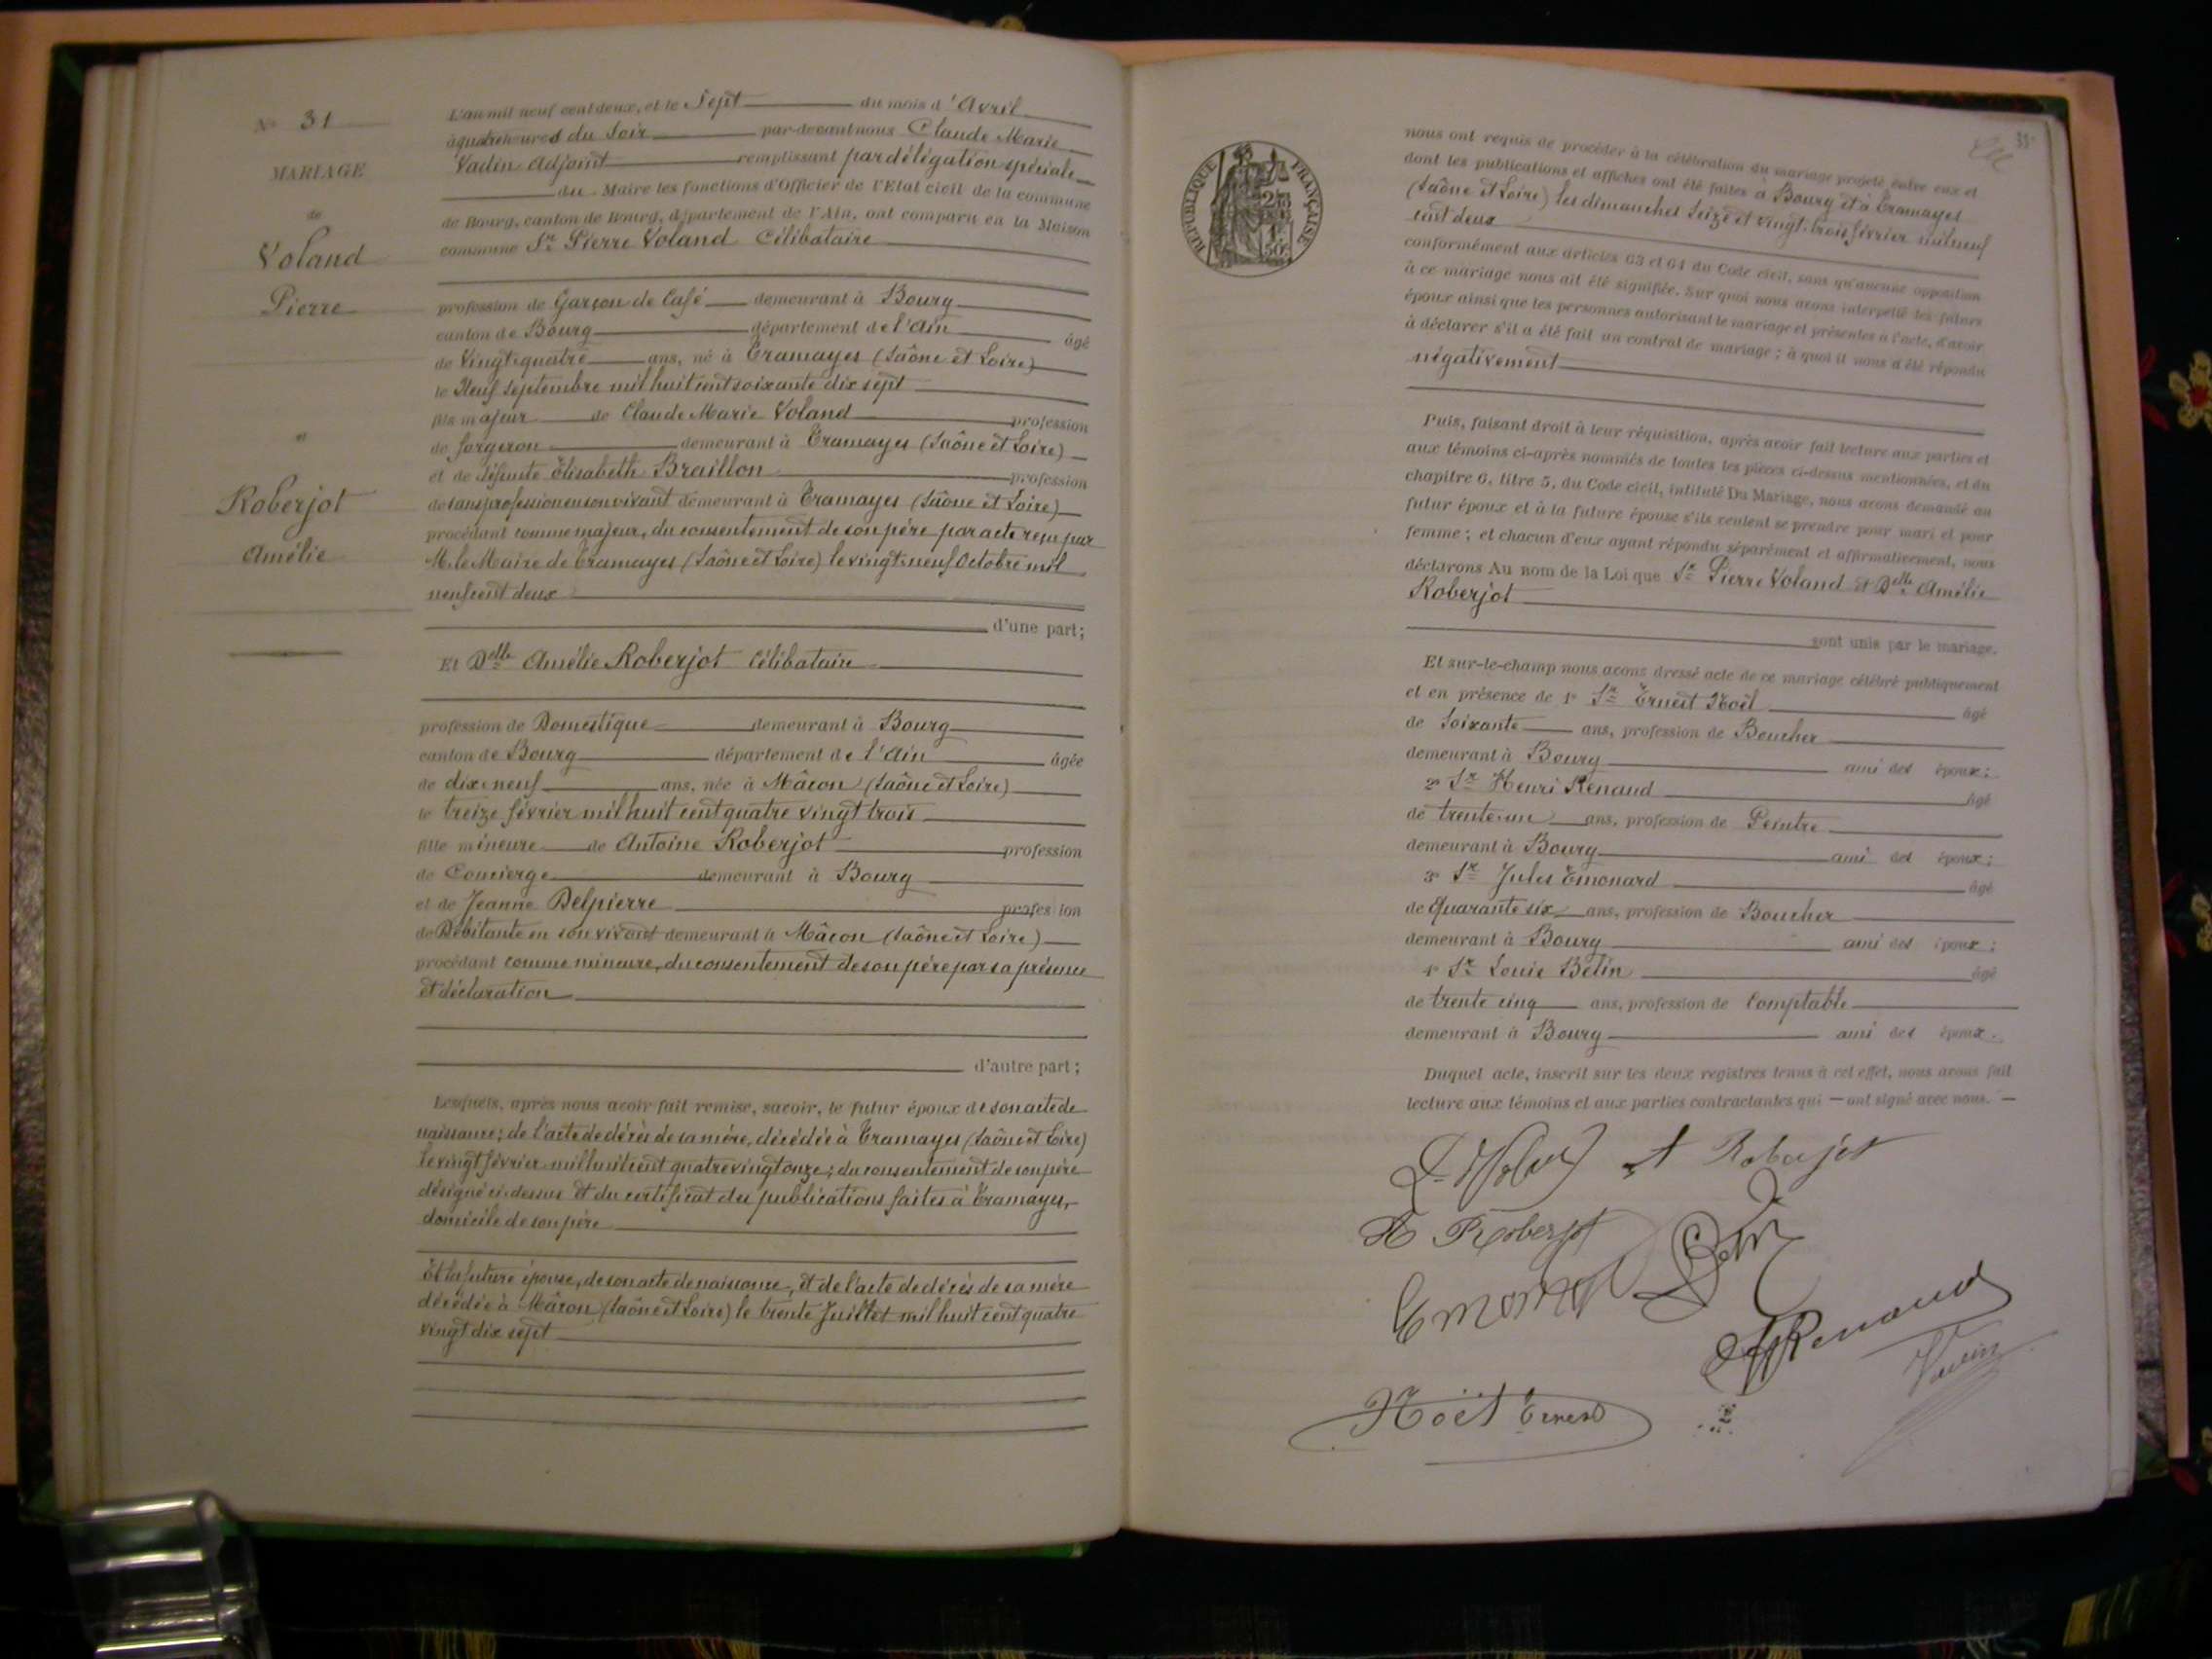 N° 31
MARIAGE
de
Voland
Pierre
et
Roberjot
Amélie
L'an mil neuf cent deux, et le Sept du mois d'Avril
à quatre heures du Soir par-devant nous Claude Marie
Vadin Adjoint remplissant par délégation spéciale
du Maire les fonctions d'Officier de l'Etat civil de la commune
de Bourg, canton de Bourg, département de l'Ain, ont comparu en la Maison
commune Sr Pierre Voland Célibataire
profession de Garçon de Café demeurant à Bourg
canton de Bourg département de l'Ain âgé
de Vingt-quatre ans, né à Tramayes (Saône et Loire)
le Neuf Septembre mil huit cent soixante dix sept
fils majeur de Claude Marie Voland profession
de forgeron demeurant à Tramayes (Saône et Loire)
et de défunte Élisabeth Braillon profession
de sans profession en son vivant demeurant à Tramayes (Saône et Loire)
procédant comme majeur, du consentement de son père par acte reçu par
M. le Maire de Tramayes (Saône et Loire) le vingt-neuf Octobre mil
neuf cent deux
d'une part;
Et Delle Amélie Roberjot Célibataire
profession de Domestique demeurant à Bourg
canton de Bourg département de l'Ain âgée
de dix-neuf ans, née à Mâcon (Saône et Loire)
le treize février mil huit cent quatre vingt trois
fille mineure de Antoine Roberjot profession
de Concierge demeurant à Bourg
et de Jeanne Delpierre profession
de Débitante en son vivant demeurant à Mâcon (Saône et Loire)
procédant comme mineure, du consentement de son père par sa présence
et déclaration
d'autre part;
Lesquels, après nous avoir fait remise, savoir, le futur époux de son acte de
naissance; de l'acte de décès de sa mère, décédée à Tramayes (Saône et Loire)
le vingt février mil huit cent quatre vingt onze; du consentement de son père
désigné ci-dessus et du certificat des publications faites à Tramayes,
domicile de son père
Et la future épouse, de son acte de naissance, et de l'acte de décès de sa mère
décédée à Mâcon (Saône et Loire) le trente Juillet mil huit cent quatre
vingt dix sept
35
RÉPUBLIQUE FRANÇAISE
nous ont requis de procéder à la célébration du mariage projeté entre eux et
dont les publications et affiches ont été faites à Bourg et à Tramayes
(Saône et Loire) les dimanches Seize et vingt-trois février mil neuf
cent deux
conformément aux articles 63 et 64 du Code civil, sans qu'aucune opposition
à ce mariage nous ait été signifiée. Sur quoi nous avons interpellé les futurs
époux ainsi que les personnes autorisant le mariage et présentes à l'acte, d'avoir
à déclarer s'il a été fait un contrat de mariage; à quoi il nous a été répondu
négativement
Puis, faisant droit à leur réquisition, après avoir fait lecture aux parties et
aux témoins ci-après nommés de toutes les pièces ci-dessus mentionnées, et du
chapitre 6, titre 5, du Code civil, intitulé Du Mariage, nous avons demandé au
futur époux et à la future épouse s'ils veulent se prendre pour mari et pour
femme; et chacun d'eux ayant répondu séparément et affirmativement, nous
déclarons Au nom de la Loi que Sr Pierre Voland et Delle Amélie
Roberjot
sont unis par le mariage.
Et sur-le-champ nous avons dressé acte de ce mariage célébré publiquement
et en présence de 1° Sr Ernest Noël âgé
de Soixante ans, profession de Boucher
demeurant à Bourg ami des époux;
2° Sr Henri Renaud âgé
de trente-un ans, profession de Peintre
demeurant à Bourg ami des époux;
3° Sr Jules Emonard âgé
de Quarante six ans, profession de Boucher
demeurant à Bourg ami des époux;
4° Sr Louis Bélin âgé
de trente cinq ans, profession de Comptable
demeurant à Bourg ami des époux.
Duquel acte, inscrit sur les deux registres tenus à cet effet, nous avons fait
lecture aux témoins et aux parties contractantes qui — ont signé avec nous. —
A Roberjot
A Roberjot
Renaud
Vadin
Noël Ernest